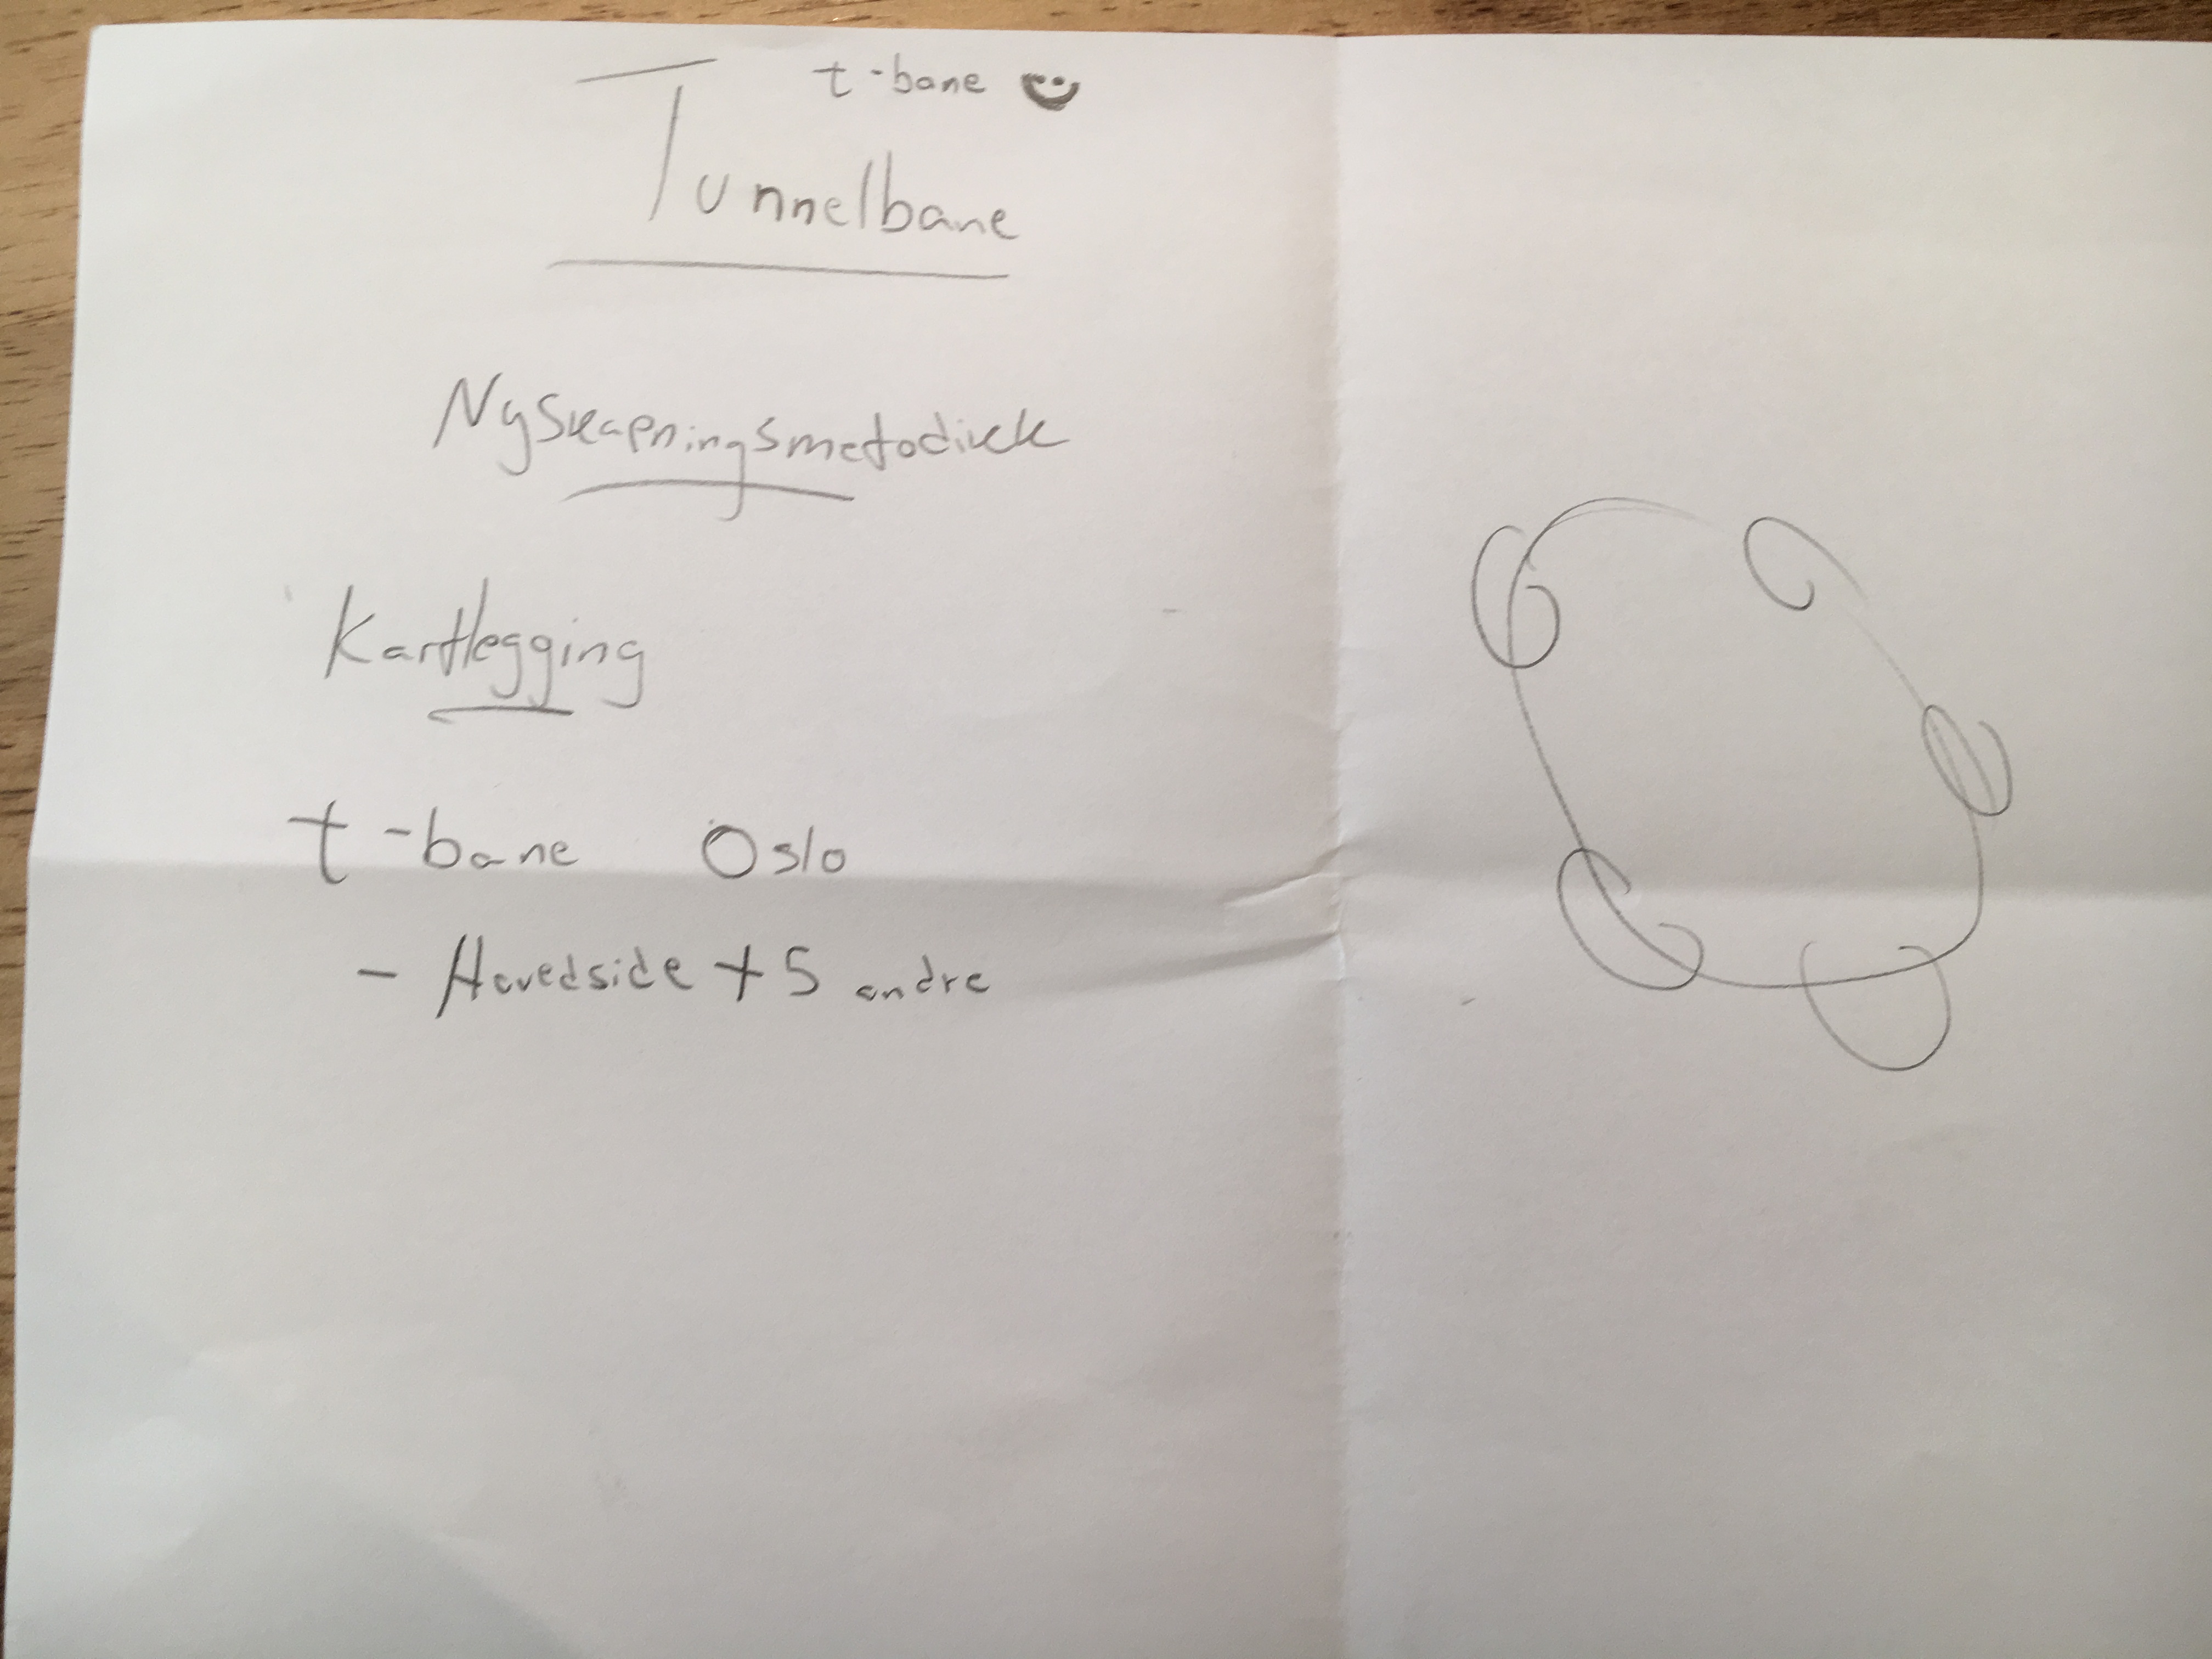 t-bane
Tunnelbane
Nyskapningsmetodikk
Kartlegging
t-bane Oslo
- Hovedside + 5 andre